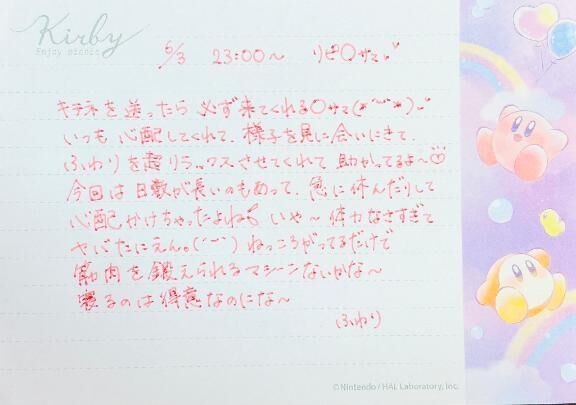 Kirby
Enjoy picnic
6/3 23:00〜 リピ〇サマ
キテネを送ったら必ず来てくれる〇サマ(*˘︶˘*)
いつも心配してくれて、様子を見に会いにきて、
ふわりを超リラックスさせてくれて助かってるよ〜♡
今回は日数が長いのもあって、急に休んだりして
心配かけちゃったよね いや〜体力なさすぎて
ヤバたにえん。(´︶`) ねっころがってるだけで
筋肉を鍛えられるマシーンないかな〜
寝るのは得意なのにな〜
ふわり
© Nintendo / HAL Laboratory, Inc.